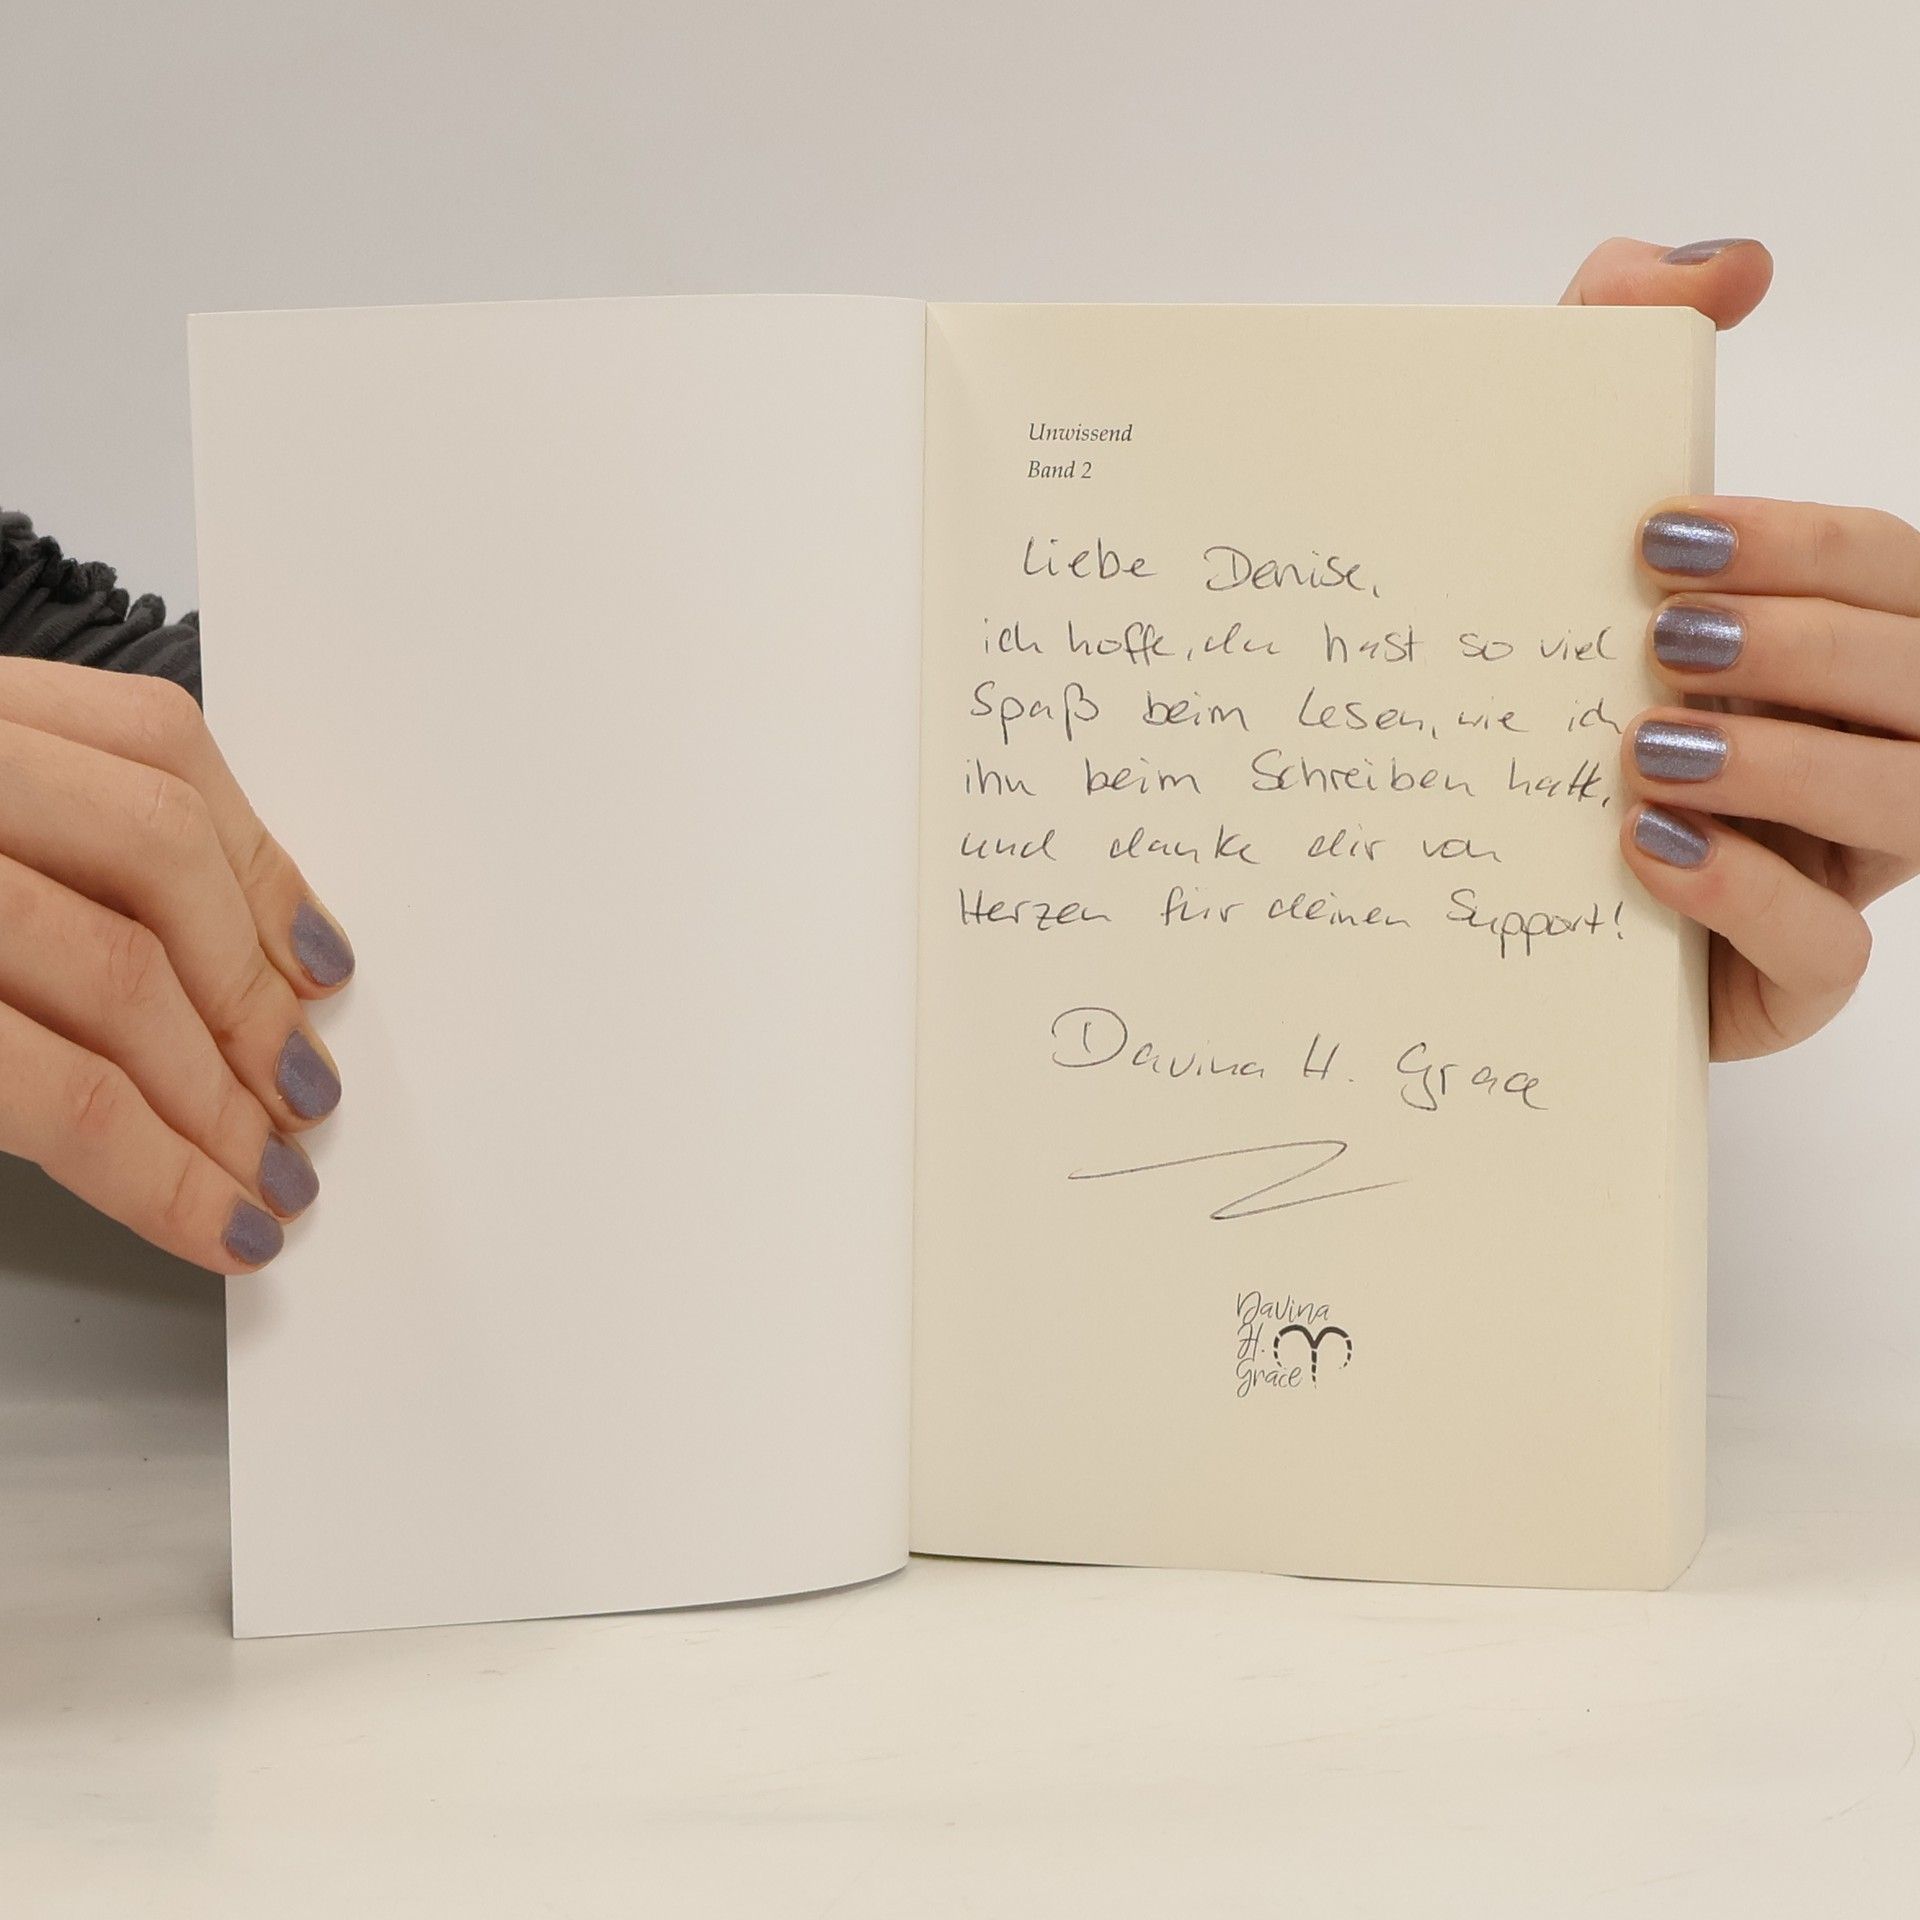 Unwissend
Band 2
Liebe Denise,
ich hoffe, du hast so viel
Spaß beim Lesen, wie ich
ihn beim Schreiben hatte,
und danke dir von
Herzen für deinen Support!
Davina H. Grace
Davina
H.
Grace